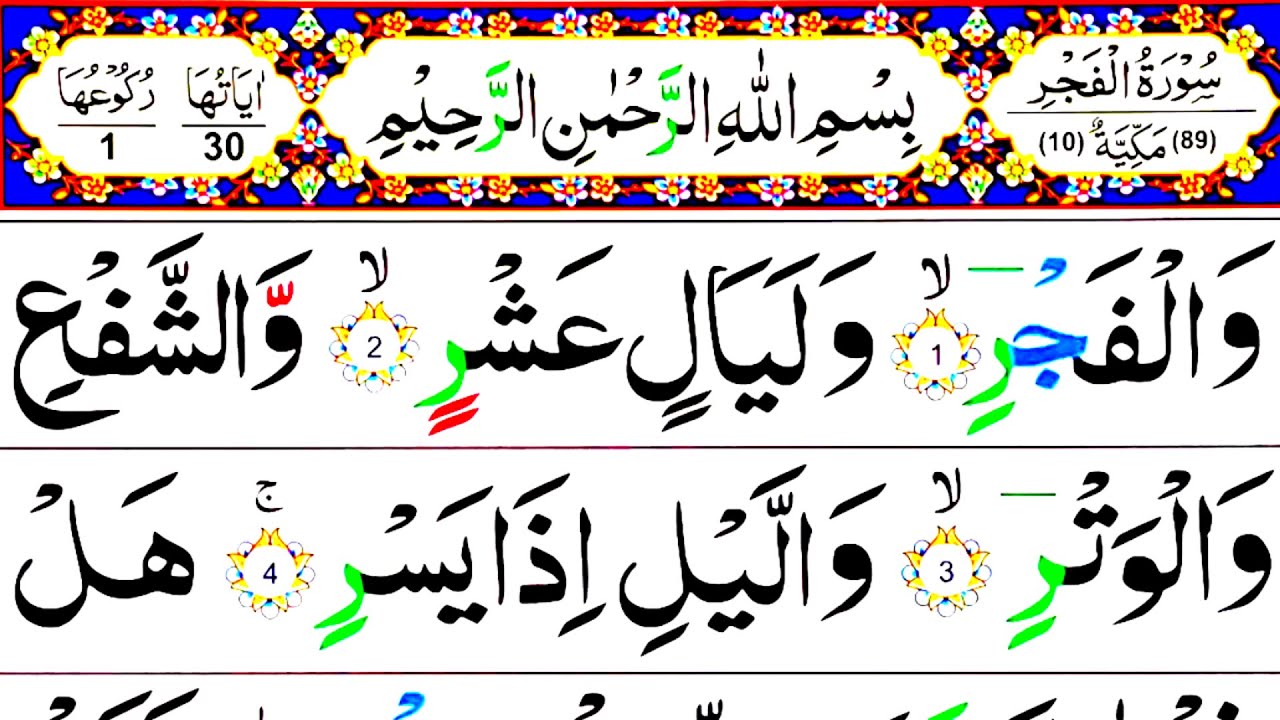 سُوْرَةُ الْفَجْرِ
(89) مَكِّيَّةٌ (10)
بِسْمِ اللّٰهِ الرَّحْمٰنِ الرَّحِيْمِ
اٰيَاتُهَا 30
رُكُوْعُهَا 1
وَالْفَجْرِ ۙ 1 وَلَيَالٍ عَشْرٍ ۙ 2 وَّالشَّفْعِ
وَالْوَتْرِ ۙ 3 وَالَّيْلِ اِذَا يَسْرِ ۚ 4 هَلْ